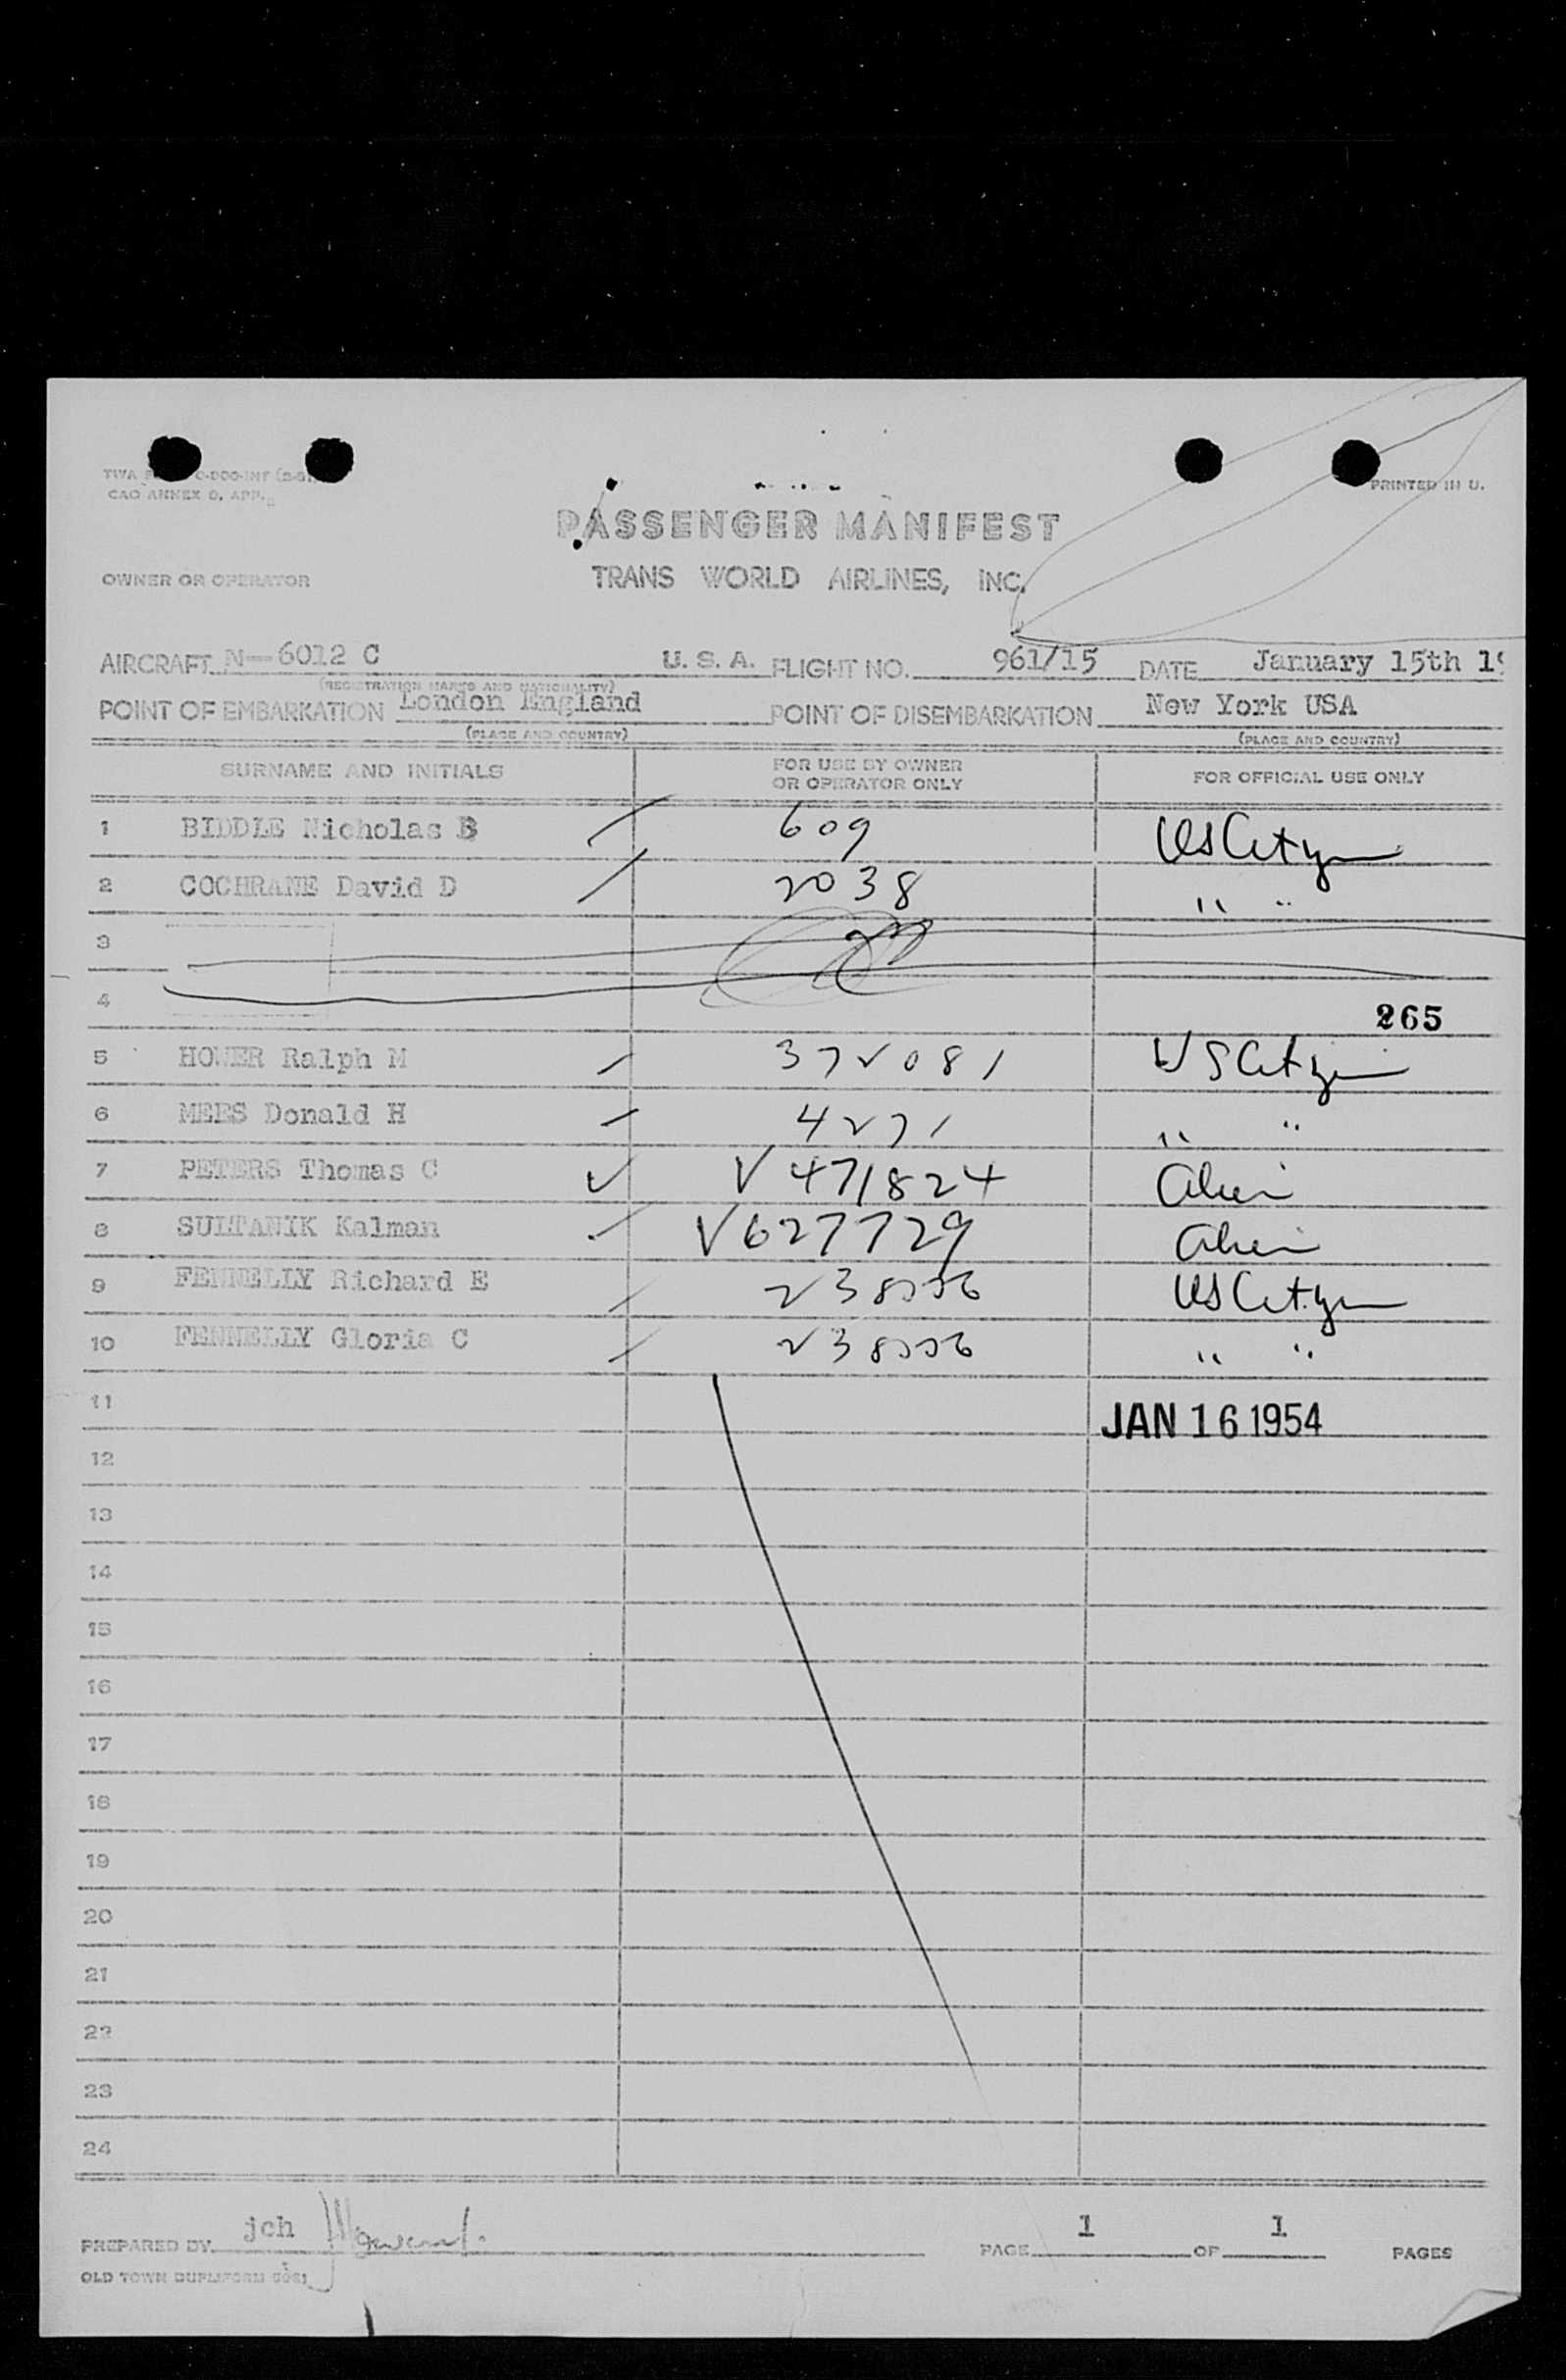 CAO ANNEX 9, APP.
PRINTED IN U.
PASSENGER MANIFEST
OWNER OR OPERATOR TRANS WORLD AIRLINES, INC.
AIRCRAFT N-6012 C U. S. A. FLIGHT NO. 961/15 DATE January 15th 19
(REGISTRATION MARKS AND NATIONALITY)
POINT OF EMBARKATION London England POINT OF DISEMBARKATION New York USA
(PLACE AND COUNTRY) (PLACE AND COUNTRY)
SURNAME AND INITIALS FOR USE BY OWNER OR OPERATOR ONLY FOR OFFICIAL USE ONLY
1 BIDDLE Nicholas B 609 US Citizen
2 COCHRANE David D 2038 " "
3
4
265
5 HOWER Ralph M 372081 US Citizen
6 MEES Donald H 4271 " "
7 PETERS Thomas C V 471824 Alien
8 SULTANIK Kalman V627729 Alien
9 FENNELLY Richard E US Citizen
10 FENNELLY Gloria C " "
11 JAN 16 1954
12
13
14
15
16
17
18
19
20
21
22
23
24
PREPARED BY jch PAGE 1 OF 1 PAGES
OLD TOWN DUPLIFORM